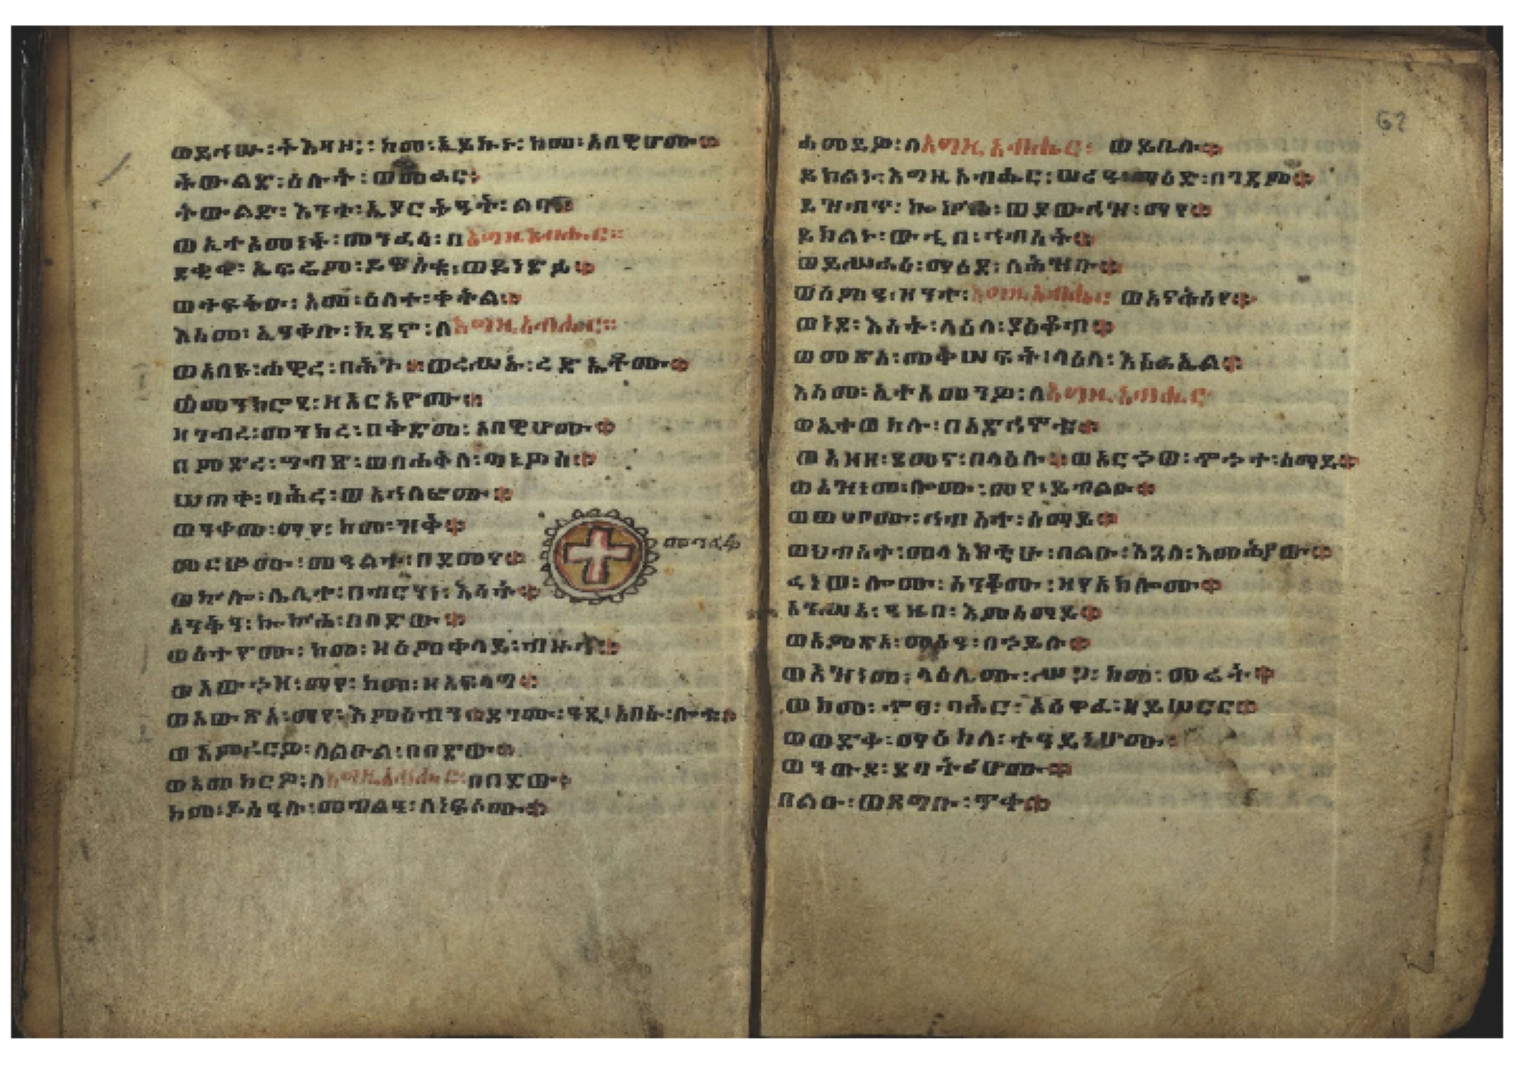 ወይኅሡ፡ትእዛዞ፡ከመ፡ኢይኩኑ፡ከመ፡አበዊሆሙ።
ትውልድ፡ዕሉት፡ወመራር።
ትውልድ፡እንተ፡ኢያርትዐት፡ልባ።
ወኢተአመነት፡መንፈሳ፡በእግዚአብሔር።
ደቂቀ፡ኤፍሬም፡ይዌስቁ፡ወይነድፉ።
አመ፡ዕለተ፡ቀትል።
እስመ፡ኢዓቀቡ፡ኪዳኖ፡ለእግዚአብሔር።
ወአበዩ፡ሐዊረ፡በሕጉ።ወረሥኡ፡ረድኤቶሙ።
ወመንክሮሂ፡ዘአርአዮሙ።
ዘገብረ፡መንክረ፡በቅድመ፡አበዊሆሙ።
በምድረ፡ግብጽ፡ወበሐቅለ፡ጣኔዎስ።
ሠጠቀ፡ባሕረ፡ወአኅለፎሙ።
ወዓቀመ፡ማየ፡ከመ፡ዝቅ።
መርሆሙ፡መዓልተ፡በደመና።
ወኵሎ፡ሌሊተ፡በብርሃነ፡እሳት።
አንቅዐ፡ኰኵሐ፡በበድው።
ወሰተዮሙ፡ከመ፡ዘእምቀላይ፡ብዙኅ።
ወአውኀዘ፡ማየ፡ከመ፡ዘአፍላግ።
ወአውጽአ፡ማየ፡እምዕብን።ደገሙ፡ዓዲ፡አበሱ፡ሎቱ።
ወአምረርዎ፡ለልዑል፡በበድው።
ወአመከርዎ፡ለእግዚአብሔር፡በበድው።
ከመ፡ይስዓሉ፡መብልዐ፡ለነፍሶሙ።
ሐመይዎ፡ለእግዚአብሔር፡ ወይቤሉ።
ይክልኑ፡እግዚአብሔር፡ሠሪዐ፡ማዕድ፡በገዳም።
ይዝብጥ፡ኰኵሐ፡ወያውኅዝ፡ማየ።
ይክልኑ፡ውሂበ፡ኅብስት።
ወይሠራዕ፡ማዕደ፡ለሕዝቡ።
ወሰምዐ፡ዘንተ፡እግዚአብሔር፡ ወአናሕሰየ።
ወነደ፡እሳት፡ላዕለ፡ያዕቆብ።
ወመጽአ፡መቅሠፍት፡ላዕለ፡እስራኤል።
እስመ፡ኢተአመንዎ፡ለእግዚአብሔር
ወኢተወከሉ፡በአድኅኖቱ።
ወአዘዘ፡ደመና፡በላዕሉ።ወአርኀወ፡ኆኅተ፡ሰማይ።
ወአዝነመ፡ሎሙ፡መና፡ይብልዑ።
ወወሀቦሙ፡ኅብስተ፡ሰማይ።
ወኅብስተ፡መላእክቲሁ፡በልዑ፡እጓለ፡እመሕያው።
ፈነወ፡ሎሙ፡ስንቆሙ፡ዘየአክሎሙ።
አንሥአ፡ዓዜበ፡እምሰማይ።
ወአምጽአ፡መስዐ፡በኀይሉ።
ወአዝነመ፡ላዕሌሙ፡ሥጋ፡ከመ፡መሬት።
ወከመ፡ኆፃ፡ባሕር፡አዕዋፈ፡ዘይሠርር።
ወወድቀ፡ማዕከለ፡ተዓይኒሆሙ።
ወዓውደ፡ደባትሪሆሙ።
በልዑ፡ወጸግቡ፡ጥቀ።